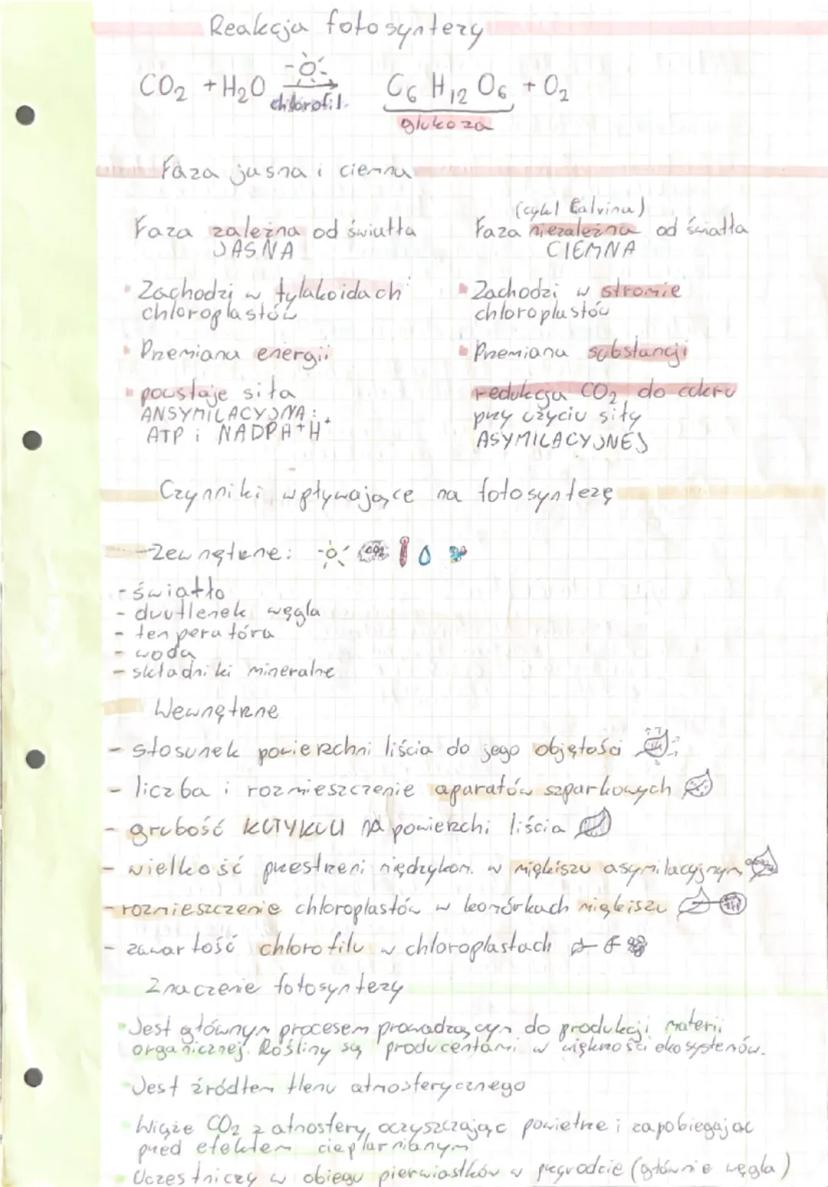 Reakcja fotosyntezy
CO₂ + H₂O → C₆H₁₂O₆ + O₂
chlorofil
glukoza
Faza jasna i ciemna
Faza zależna od światła
JASNA
• Zachodzi w tylakoidach
chloroplastów
• Przemiana energii
• powstaje siła
ANSYMILACYJNA:
ATP i NADPH+H⁺
(cykl Calvina)
Faza niezależna od światła
CIEMNA
• Zachodzi w stromie
chloroplastów
• Przemiana substancji
redukcja CO₂ do cukru
przy użyciu siły
ASYMILACYJNEJ
Czynniki wpływające na fotosyntezę
- Zewnętrzne: CO₂
- światło
- dwutlenek węgla
- temperatóra
- woda
- składniki mineralne
Wewnętrzne
- stosunek powierzchni liścia do jego objętości
- liczba i rozmieszczenie aparatów szparkowych
- grubość KUTYKULI NA powierzchi liścia
- wielkość przestrzeni międzykom. w miękiszu asymilacyjnym
- rozmieszczenie chloroplastów w komórkach miękiszu
- zawartość chlorofilu w chloroplastach
Znaczenie fotosyntezy
• Jest głównym procesem prowadzącym do produkcji materii
organicznej. Rośliny są producentami w większości ekosystemów.
• Jest źródłem tlenu atmosferycznego
• Wiąże CO₂ z atmosfery, oczyszczając powietrze i zapobiegając
przed efektem cieplarnianym
• Uczestniczy w obiegu pierwiastków w przyrodzie (głównie węgla)